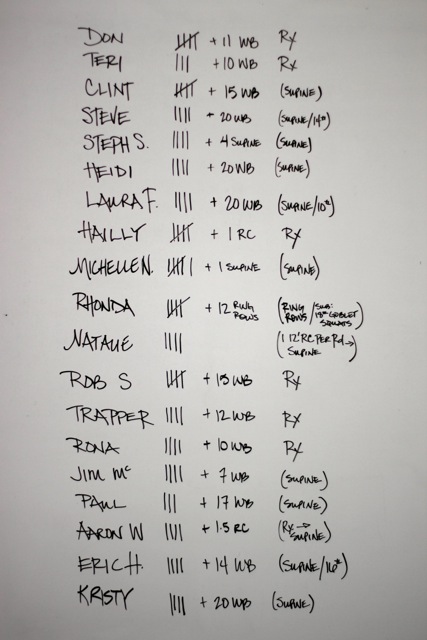 DON 𝍸 + 11 WB Rx
TERI ||| + 10 WB Rx
CLINT 𝍸 + 15 WB (SUPINE)
STEVE |||| + 20 WB (SUPINE/14#)
STEPH S. |||| + 4 SUPINE (SUPINE)
HEIDI |||| + 20 WB (SUPINE)
LAURA F. |||| + 20 WB (SUPINE/10#)
HAILLY 𝍸 + 1 RC Rx
MICHELLE N. 𝍸| + 1 SUPINE (SUPINE)
RHONDA 𝍸 + 12 RING ROWS (RING ROWS / SUB: 18# GOBLET SQUATS)
NATALIE |||| (1 12' RC PER Rd → SUPINE)
ROB S 𝍸 + 13 WB Rx
TRAPPER |||| + 12 WB Rx
RONA |||| + 10 WB Rx
JIM Mc |||| + 7 WB (SUPINE)
PAUL ||| + 17 WB (SUPINE)
AARON W |||| + 1.5 RC (Rx → SUPINE)
ERIC H. |||| + 14 WB (SUPINE/16#)
KRISTY |||| + 20 WB (SUPINE)